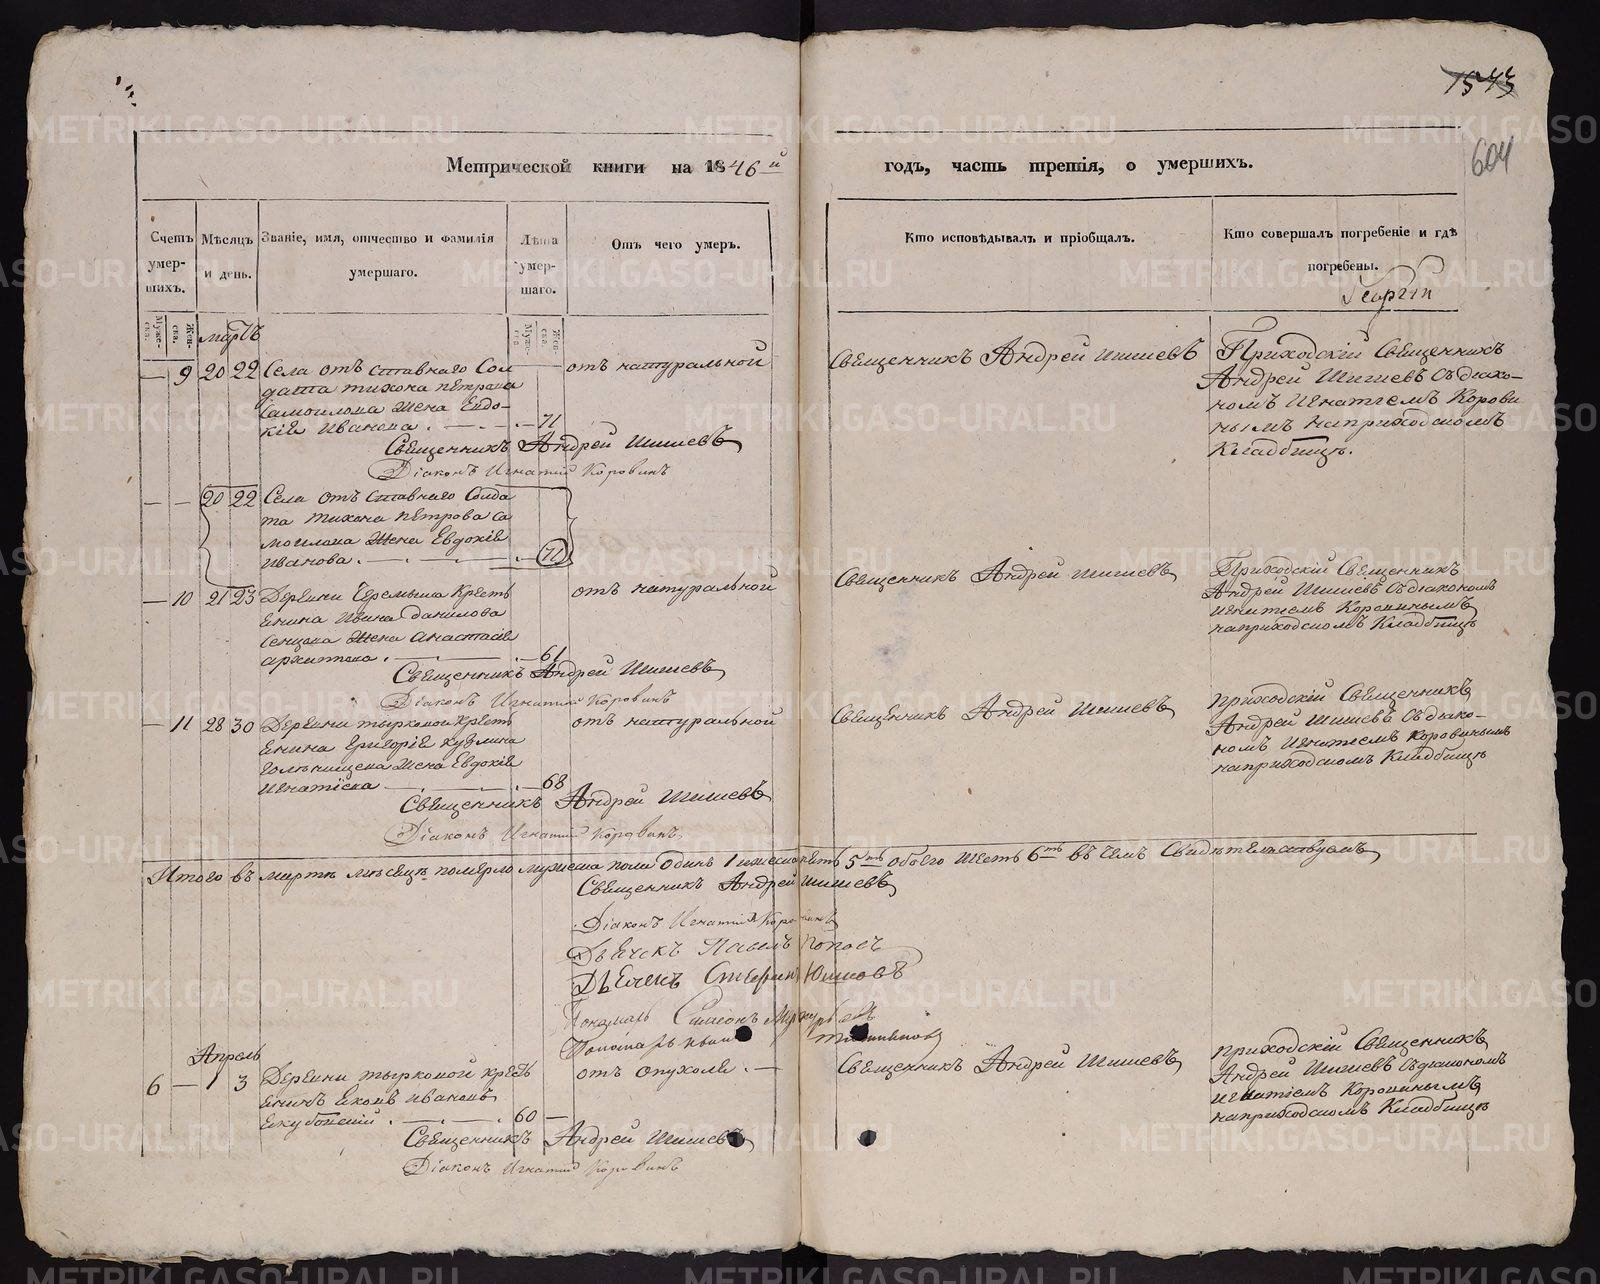 1543
604
Метрической книги на 1846й годъ, часть третія, о умершихъ.
Счетъ умер-шихъ.
Мѣсяцъ и день.
Званіе, имя, отчество и фамилія умершаго.
Лѣта умер-шаго.
Отъ чего умеръ.
Кто исповѣдывалъ и пріобщалъ.
Кто совершалъ погребеніе и гдѣ погребены.
Георгій
Муже-ска.
Жен-ска.
Муже-ска.
Жен-ска.
мартъ
— 9 20 22 Села отъ ставнаго Сол
дата тихона петрова
Самоилова жена Евдо-
кія Иванова . — 71
отъ натуральной
Священникъ Андрей Шишевъ
Приходскій Священникъ
Андрей Шишевъ съ діако-
номъ Игнатіемъ Корови
нымъ наприходскомъ
Кладбищѣ.
Священникъ Андрей Шишевъ
Діаконъ Игнатий Коровинъ
— — 20 22 Села отъ ставнаго Солда
та тихона петрова са
моилова жена Евдокія
иванова . — . — 71
— 10 21 23 Деревни Черемыша Кресть
янина Ивана данилова
жена анастасія
архипова . — 61
отъ натуральной
Священникъ Андрей Шишевъ
Приходскій Священникъ
Андрей Шишевъ съ діакономъ
игнатіемъ Коровинымъ
наприходскомъ Кладбищѣ
Священникъ Андрей Шишевъ
Діаконъ Игнатий Коровинъ
— 11 28 30 Деревни тырковой кресть
янина Григорія кузмина
жена Евдокія
игнатіева — 68
отъ натуральной
Священникъ Андрей Шишевъ
приходскій Священникъ
Андрей Шишевъ съ діако-
номъ Игнатіемъ Коровинымъ
наприходскомъ Кладбищѣ
Священникъ Андрей Шишевъ
Діаконъ Игнатий Коровинъ
Итого въ мартѣ мѣсяцѣ померло мужеска пола Одинъ 1 женска пять 5ть обоего шесть 6ть въ чемъ Свидѣтельствуемъ
Священникъ Андрей Шишевъ
Діаконъ Игнатий Коровинъ
Дьячекъ Павелъ Поповъ
Дьячекъ Стефанъ
Пономарь Симеонъ
Пономарь
Апрель
6 — 1 3 Деревни тырковой крест
янинъ Яковъ ивановъ
. — 60 —
отъ опухоли . —
Священникъ Андрей Шишевъ
приходскій Священникъ
Андрей Шишевъ съ діакономъ
игнатіемъ Коровинымъ
наприходскомъ Кладбищѣ
Священникъ Андрей Шишевъ
Діаконъ Игнатий Коровинъ
METRIKI.GASO-URAL.RU